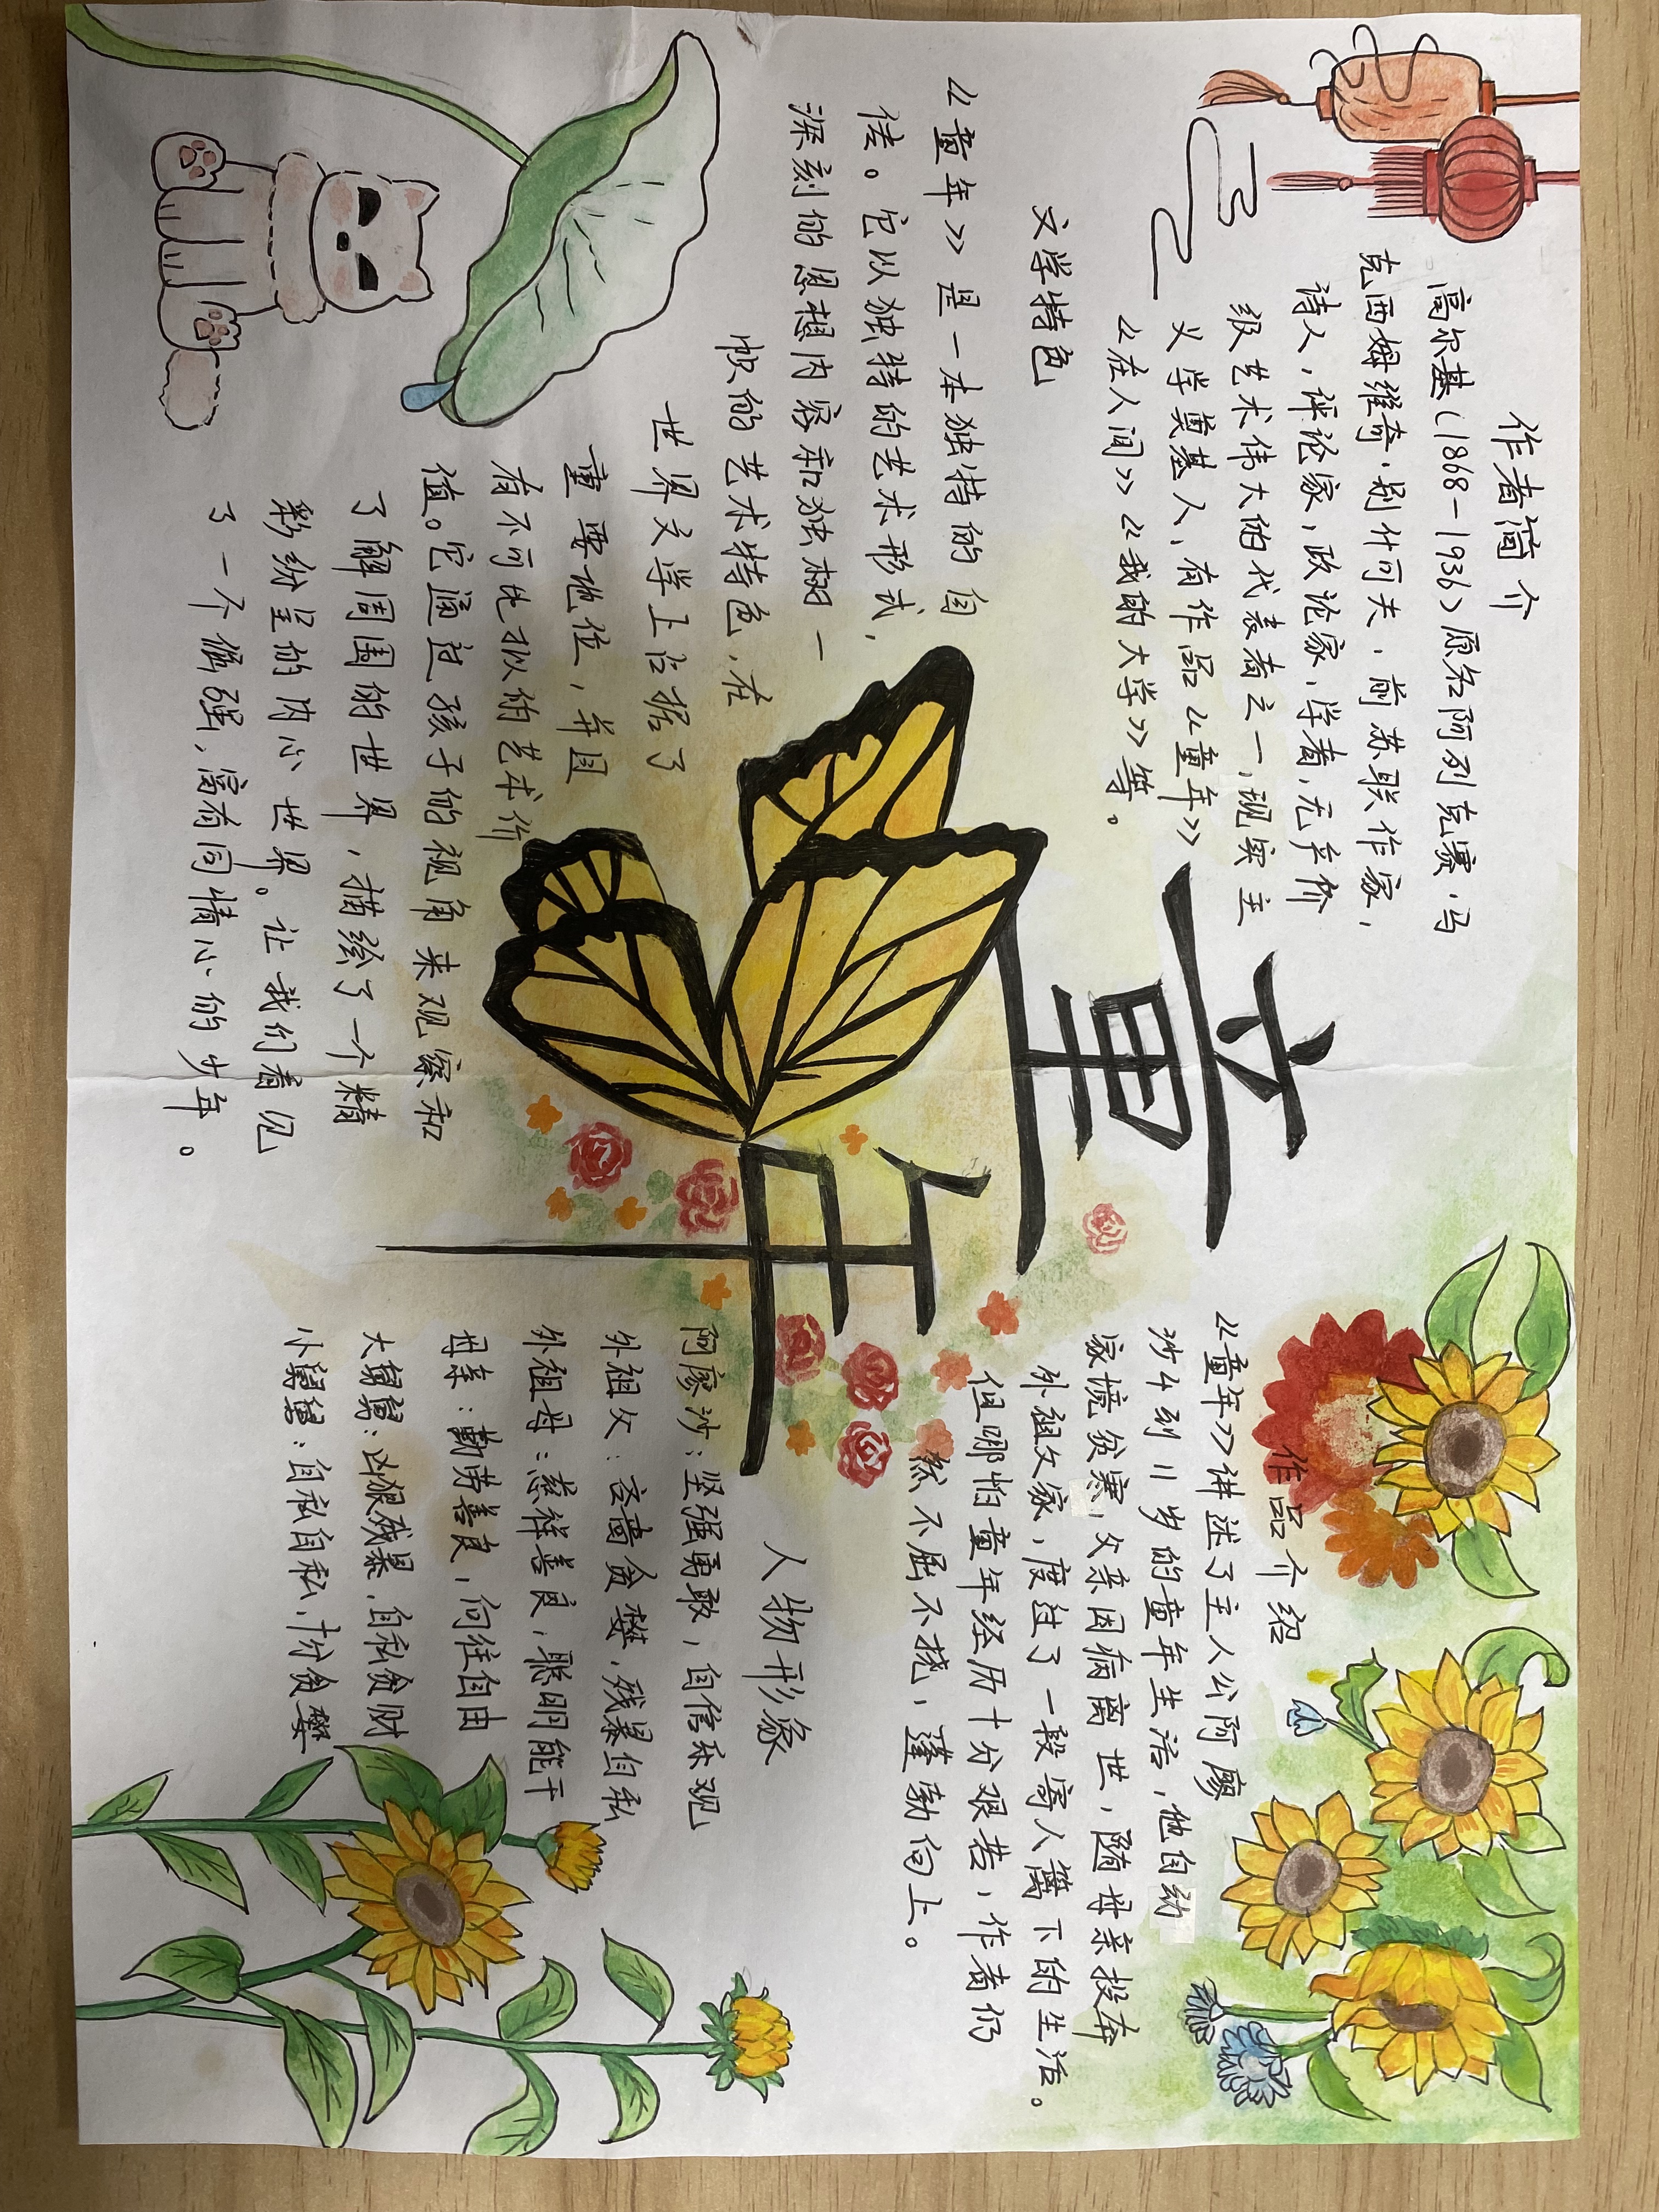 作者简介
高尔基(1868-1936)原名阿列克赛·马
克西姆维奇·别什可夫,前苏联作家,
诗人,评论家,政论家,学者,无产阶
级艺术伟大的代表者之一,现实主
义学奠基人,有作品《童年》
《在人间》《我的大学》等。
文学特色
《童年》是一本独特的自
传。它以独特的艺术形式,
深刻的思想内容和独树一
帜的艺术特色,在
世界文学上占据了
重要地位,并且
有不可比拟的艺术价
值。它通过孩子的视角来观察和
了解周围的世界,描绘了一个精
彩纷呈的内心世界。让我们看见
了一个倔强,富有同情心的少年。
童年
作品介绍
《童年》讲述了主人公阿廖
沙4到11岁的童年生活,他自幼
家境贫寒,父亲因病离世,随母亲投奔
外祖父家,度过了一段寄人篱下的生活。
但哪怕童年经历十分艰苦,作者仍
然不屈不挠,蓬勃向上。
人物形象
阿廖沙:坚强勇敢,自信乐观
外祖父:吝啬贪婪,残暴自私
外祖母:慈祥善良,聪明能干
母亲:勤劳善良,向往自由
大舅舅:凶狠残暴,自私贪财
小舅舅:自私自私,十分贪婪